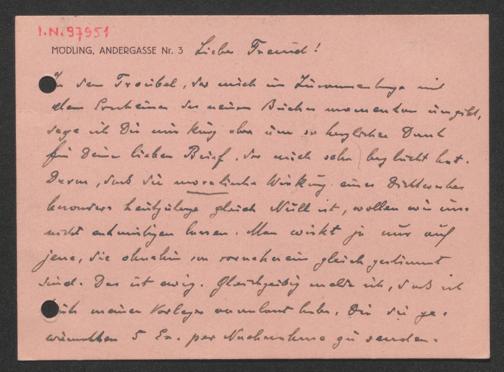 I.N. 97951
MÖDLING, ANDERGASSE Nr. 3 Lieber Freund!
In dem Troubel, der mich im Zusammenhange mit
dem Erscheinen des neuen Buches momentan umgibt,
sage ich Dir nur kurz aber um so herzlicher Dank
für Deinen lieben Brief, der mich sehr beglückt hat.
Daran, daß die moralische Wirkung eines Dichtwerkes
besonders heutzutage gleich Null ist, wollen wir uns
nicht entmutigen lassen. Man wirkt ja nur auf
jene, die ohnehin von vorneherein gleichgestimmt
sind. Das ist ewig. Gleichzeitig melde ich, daß ich
ich meinen Verleger veranlaßt habe, Dir die ge-
wünschten 5 Ex. per Nachnahme zu senden.